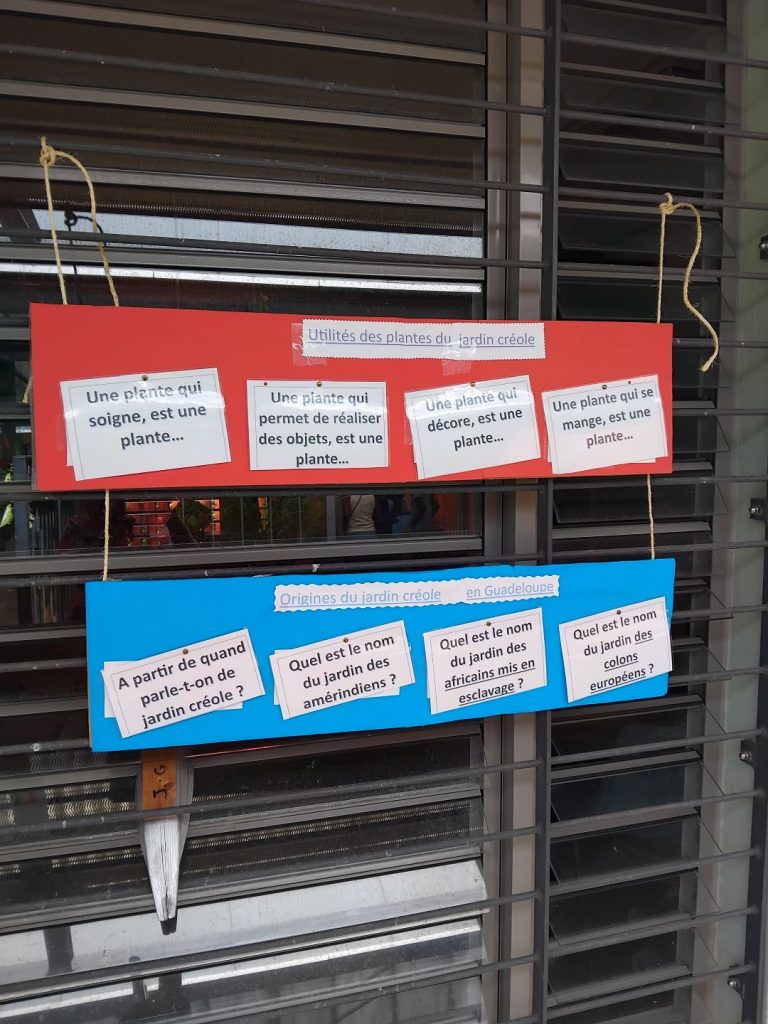 Utilités des plantes du jardin créole
Une plante qui
soigne, est une
plante...
Une plante qui
permet de réaliser
des objets, est une
plante...
Une plante qui
décore, est une
plante...
Une plante qui se
mange, est une
plante...
Origines du jardin créole en Guadeloupe
A partir de quand
parle-t-on de
jardin créole ?
Quel est le nom
du jardin des
amérindiens ?
Quel est le nom
du jardin des
africains mis en
esclavage ?
Quel est le nom
du jardin des
colons
européens ?
J.G